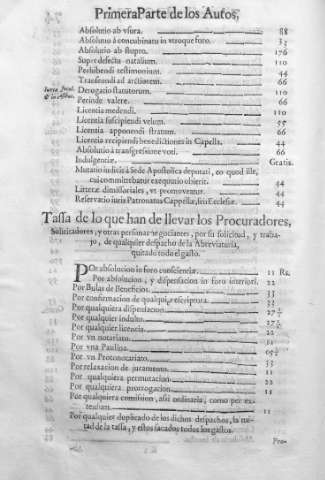 Primera Parte de los Autos,
Absolutio ab vsura. 88
Absolutio à concubinatu in vtroque foro. 33
Absolutio ab stupro. 176
Supre defectu natalium. 110
Perhibendi testimonium. 44
Transeundi ad arctiorem. 66
Derogatio statutorum. 110
Perinde valere. 66
Licentia medendi. 110
Licentia suscipiendi velum. 55
Licentia apponendi stratum. 66
Licentia recipiendi benedictionis in Capella. 44
Absolutio à transgresione voti. 66
Indulgentiæ. Gratis.
Mutatio iudicis à Sede Apostolica deputati, eo quod ille,
cui committebatur exequutio obierit. 44
Litteræ dimissoriales, vt promoveatur. 44
Reservatio iuris Patronatus Cappellæ, siu Ecclesiæ. 44
Tassa de lo que han de llevar los Procuradores,
Solicitadores, y otras personas negociantes, por su solicitud, y traba-
jo, de qualquier despacho de la Abreviaturia,
quitado todo el gasto.
Por absolucion in foro conscienciæ. 11 Rs.
Por absolucion, y dispensacion in foro interiori. 22
Por Bulas de Beneficios. 33
Por confirmacion de qualquiera escriptura. 33
Por qualquiera dispensacion. 27½
Por qualquier indulto. 27½
Por qualquier licencia. 22
Por vn notariato. 11
Por vna Paulina.
Por vn Protonotariato. 33
Por relaxacion de juramento. 11
Por qualquiera permutacion. 22
Por qualquiera prorrogacion. 11
Por qualquiera comision, assi ordinaria, como per ex-
tensum. 11
Por qualquier duplicado de los dichos despachos, la mi-
tad de la tassa, y estos sacados todos los gastos.
Pro-